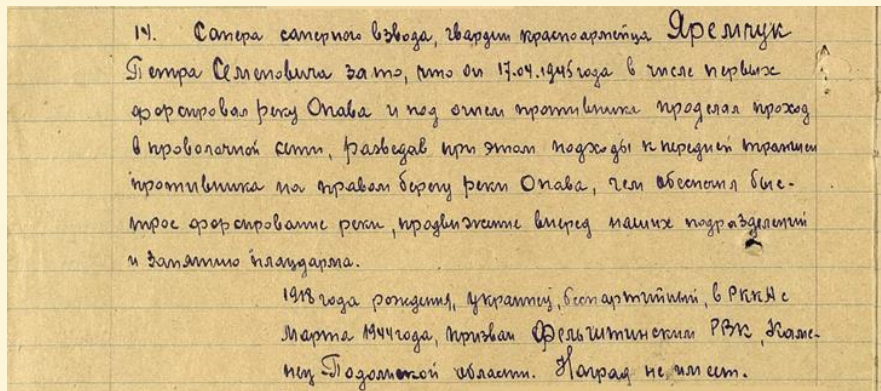 14. Сапера саперного взвода, гвардии красноармейца Яремчук
Петра Семеновича за то, что он 17.04.1945 года в числе первых
форсировал реку Опава и под огнем противника проделал проход
в проволочной сети, разведав при этом подходы к передней траншеи
противника на правом берегу реки Опава, чем обеспечил быс-
трое форсирование реки, продвижение вперед наших подразделений
и занятию плацдарма.
1918 года рождения, украинец, беспартийный, в РККА с
марта 1944 года, призван Фельштинским РВК, Каме-
нец-Подольской области. Наград не имеет.